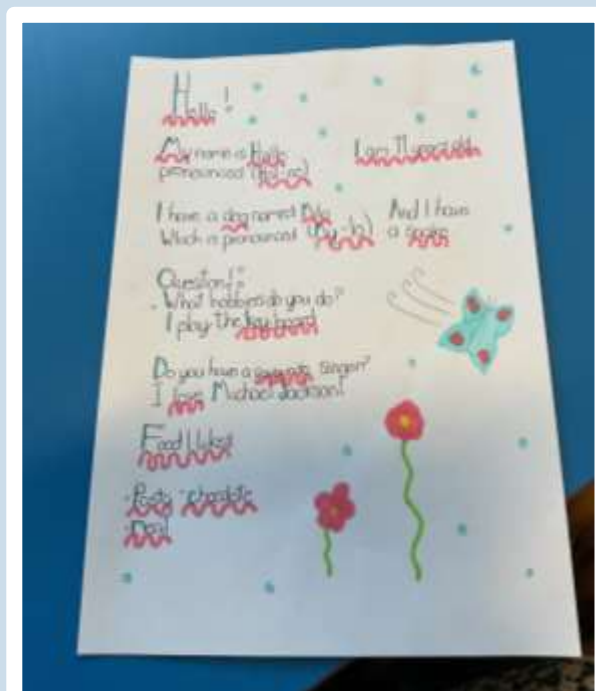 Hello!
My name is
pronounced
I am 11 years old
I have a dog named
Which is pronounced
And I have
a snake
Question!?
What hobbies do you do?
I play the keyboard
Do you have a favourite singer?
I love Michael Jackson!
Food I like!
•Pasta •chocolate